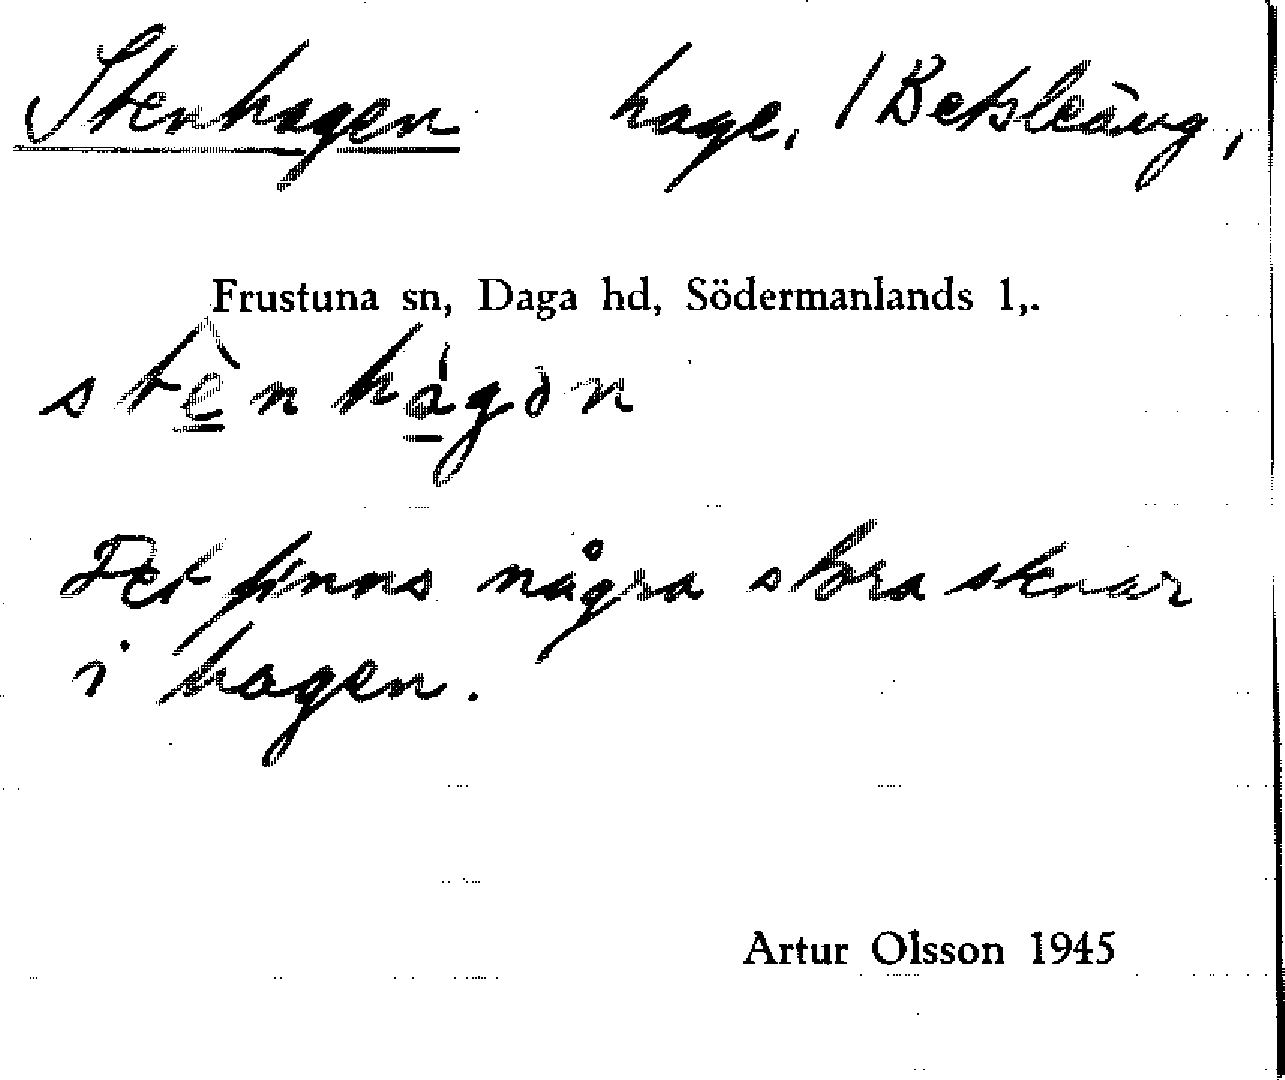 Stenhagen hage, / Betsleäng,
Frustuna sn, Daga hd, Södermanlands l,.
stènhágən
Det finns några stora stenar
i hagen.
Artur Olsson 1945